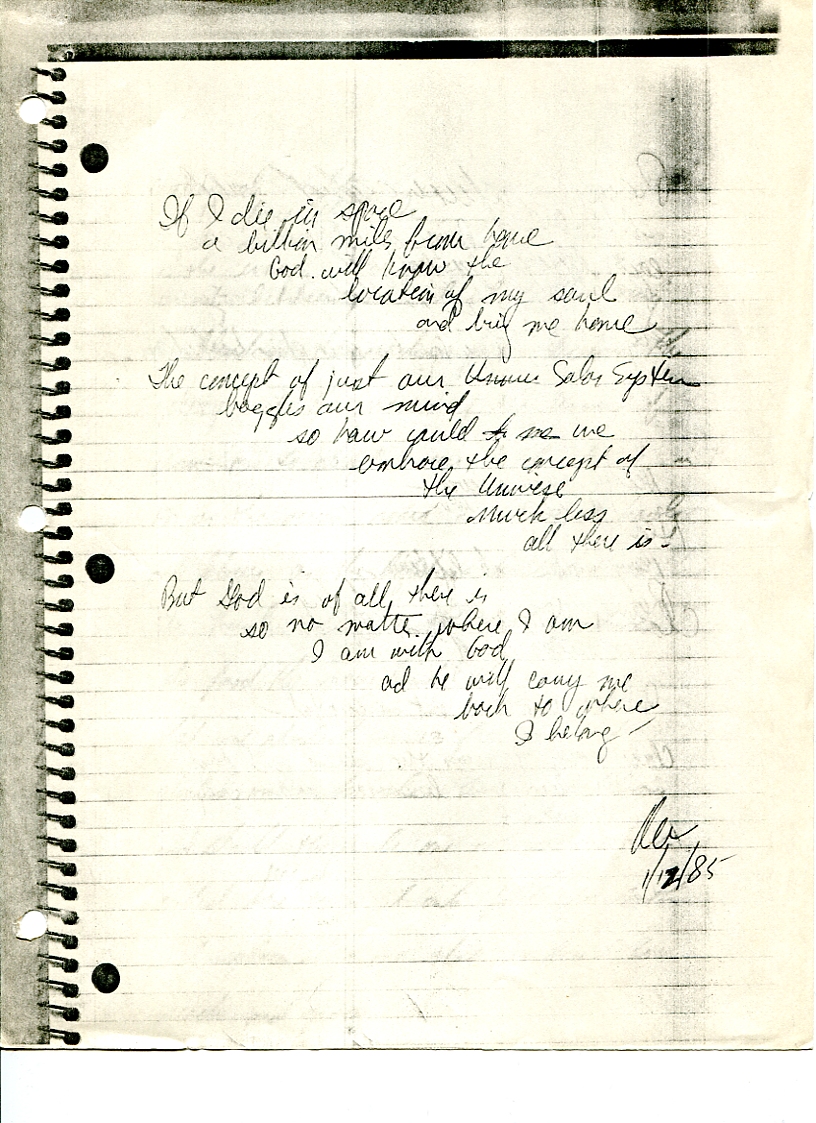 If I die in space
a billion miles from home
God will know the
location of my soul
and brig me home
The concept of just our Solar System
boggles our mind
so how could we
embrace the concept of
the Univise
Much less
all there is -
But God is of all there is
so no matter where I am
I am with God
ad he will carry me
back to where
I belong -
1/12/85